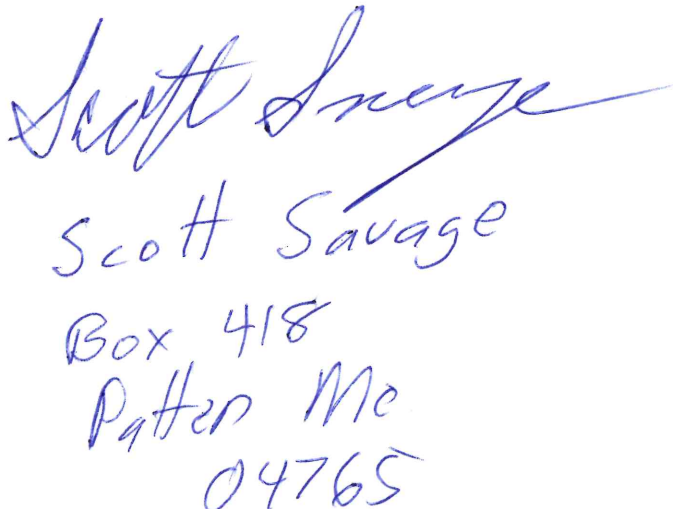 Scott Savage
Scott Savage
Box 418
Patten Me
04765